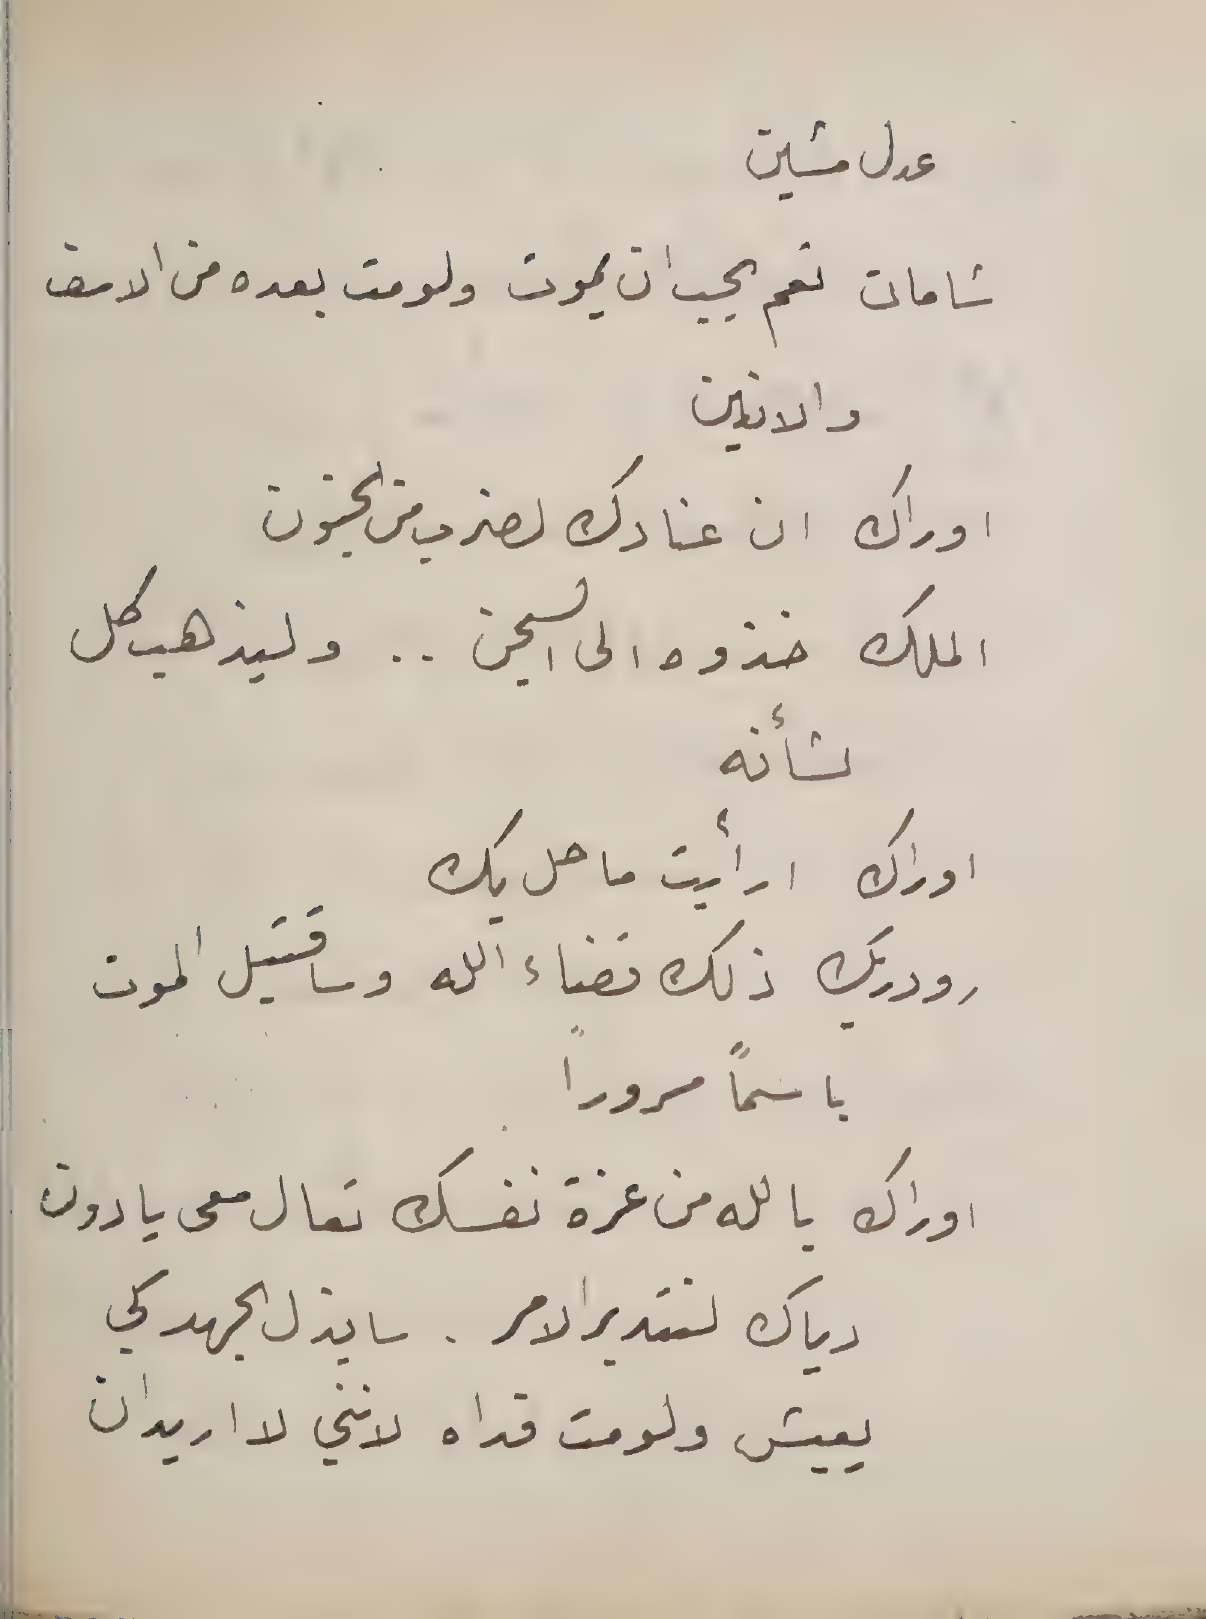 عدل مشين
شامات نعم يجب ان يموت ولو مت بعده من الاسف
والانين
اوراك ان عنادك لضرب من الجنون
الملك خذوه الى السجن .. وليذهب كل
لشأنه
اوراك ارأيت ما حل بك
رودريك ذلك قضاء الله وساقتبل الموت
باسماً مسروراً
اوراك بالله من عزة نفسك تعال معى يا دون
دياك لنتدبر الامر . سابذل الجهد كي
يعيش ولو مت فداه لانني لا اريد ان